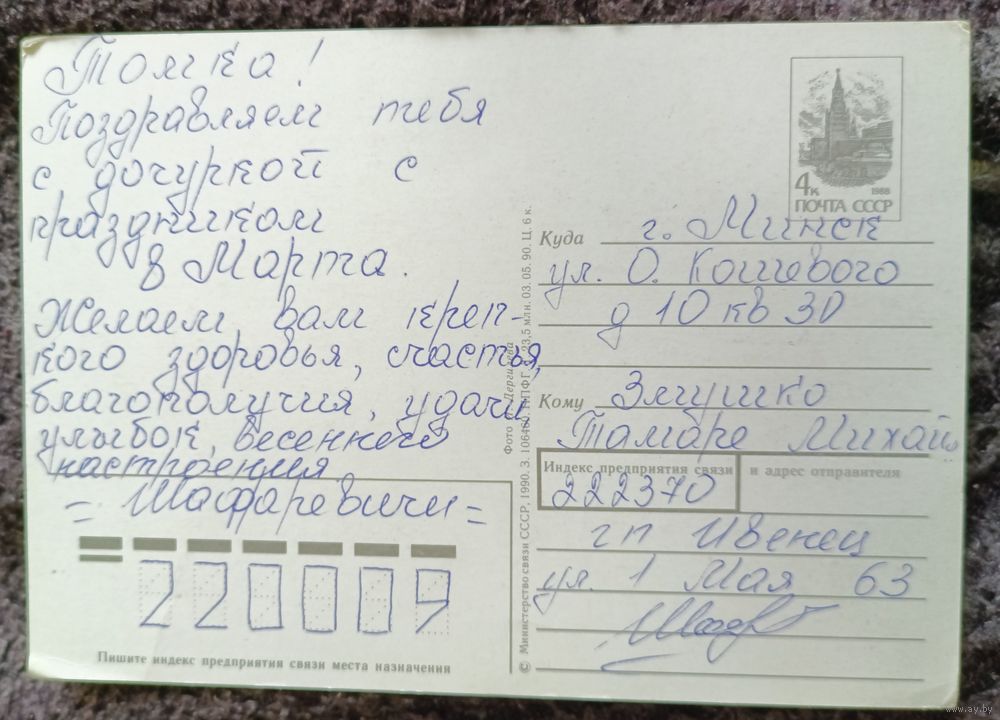 Томка!
Поздравляем тебя
с дочуркой с
праздником
8 Марта.
Желаем вам креп-
кого здоровья, счастья,
благополучия, удачи
улыбок, весеннего
настроения
= Шафаревичи =
220009
Пишите индекс предприятия связи места назначения
© Министерство связи СССР, 1990. З. 106460. ППФГ. 23,5 млн. 03. 05. 90. Ц. 6 к.
4к
1988
ПОЧТА СССР
Куда г. Минск
ул. О. Кошевого
д 10 кв 30
Кому Змушко
Тамаре Михайл
Индекс предприятия связи и адрес отправителя
222370
гп Ивенец
ул. 1 Мая 63
www.ay.by